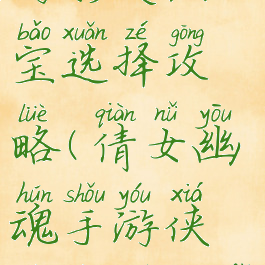 bǎo xuǎn zé gōng
宝选择攻
lüè qiàn nǚ yōu
略(倩女幽
hún shǒu yóu xiá
魂手游侠